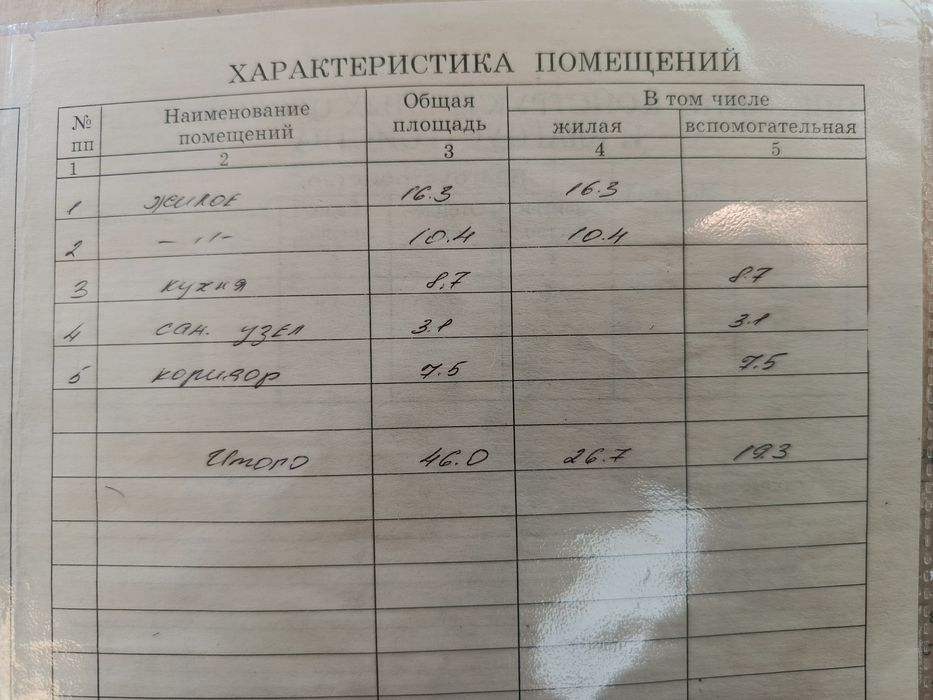 ХАРАКТЕРИСТИКА ПОМЕЩЕНИЙ
№ пп Наименование помещений Общая площадь В том числе
жилая вспомогательная
1 2 3 4 5
1 жилое 16.3 16.3
2 – 〃 – 10.4 10.4
3 кухня 8,7 8.7
4 сан. узел 3.1 3.1
5 коридор 7.5 7.5
Итого 46.0 26.7 19.3